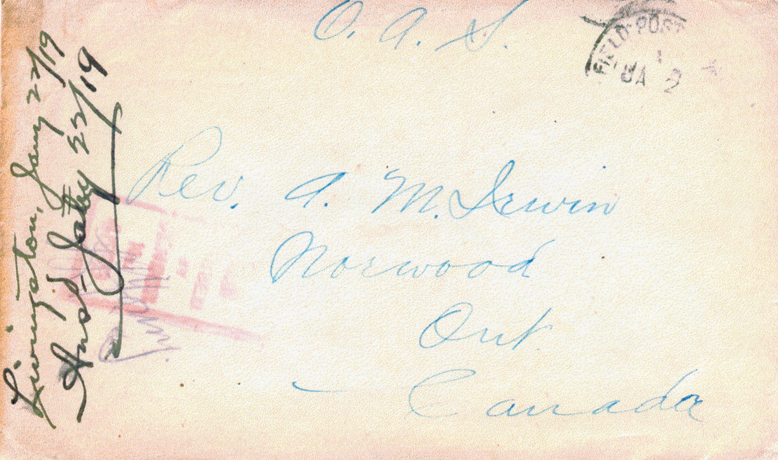 O. A. S.
FIELD POST
JA 2
Rev. A. M. Irwin
Norwood
Ont.
Canada
Livingston, Jany 22/19
Ansd July 22/19